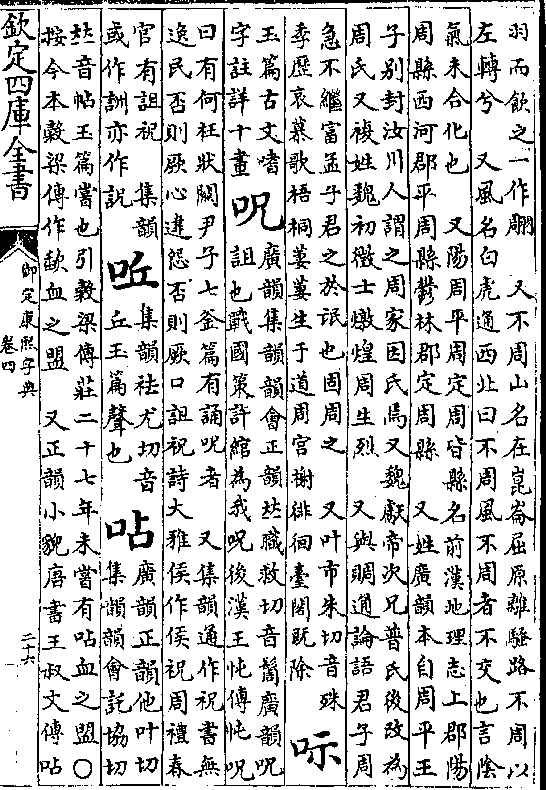 羽而飲之一作翢 又不周山名在崑崙屈原離騷路不周以
左轉兮 又風名白虎通西北曰不周風不周者不交也言陰
氣未合化也 又陽周平周定周皆縣名前漢地理志上郡陽
周縣西河郡平周縣鬱林郡定周縣 又姓廣韻本自周平王
子別封汝川人謂之周家因氏焉又魏獻帝次兄普氏後改為
周氏又複姓魏初徵士燉煌周生烈 又與賙通論語君子周
急不繼富孟子君之於氓也固周之 又叶市朱切音殊
季歷哀慕歌梧桐萋萋生于道周宮榭徘徊臺閣既除
呩
玉篇古文嗜
字註詳十畫
呪
廣韻集韻韻會正韻𠀤職救切音䛆廣韻呪
詛也戰國策許綰為我呪後漢王忳傳忳呪
曰有何枉狀關尹子七釜篇有誦呪者 又集韻通作祝書無
逸民否則厥心違怨否則厥口詛祝詩大雅侯作侯祝周禮春
官有詛祝 集韻
或作詶亦作詋
㖈
集韻祛尤切音
丘玉篇聲也
呫
廣韻正韻他叶切
集韻韻會託協切
𠀤音帖玉篇嘗也引穀梁傳莊二十七年未嘗有呫血之盟〇
按今本穀梁傳作歃血之盟 又正韻小貌唐書王叔文傳呫
欽定四庫全書
御定康熙字典
卷四
二十六